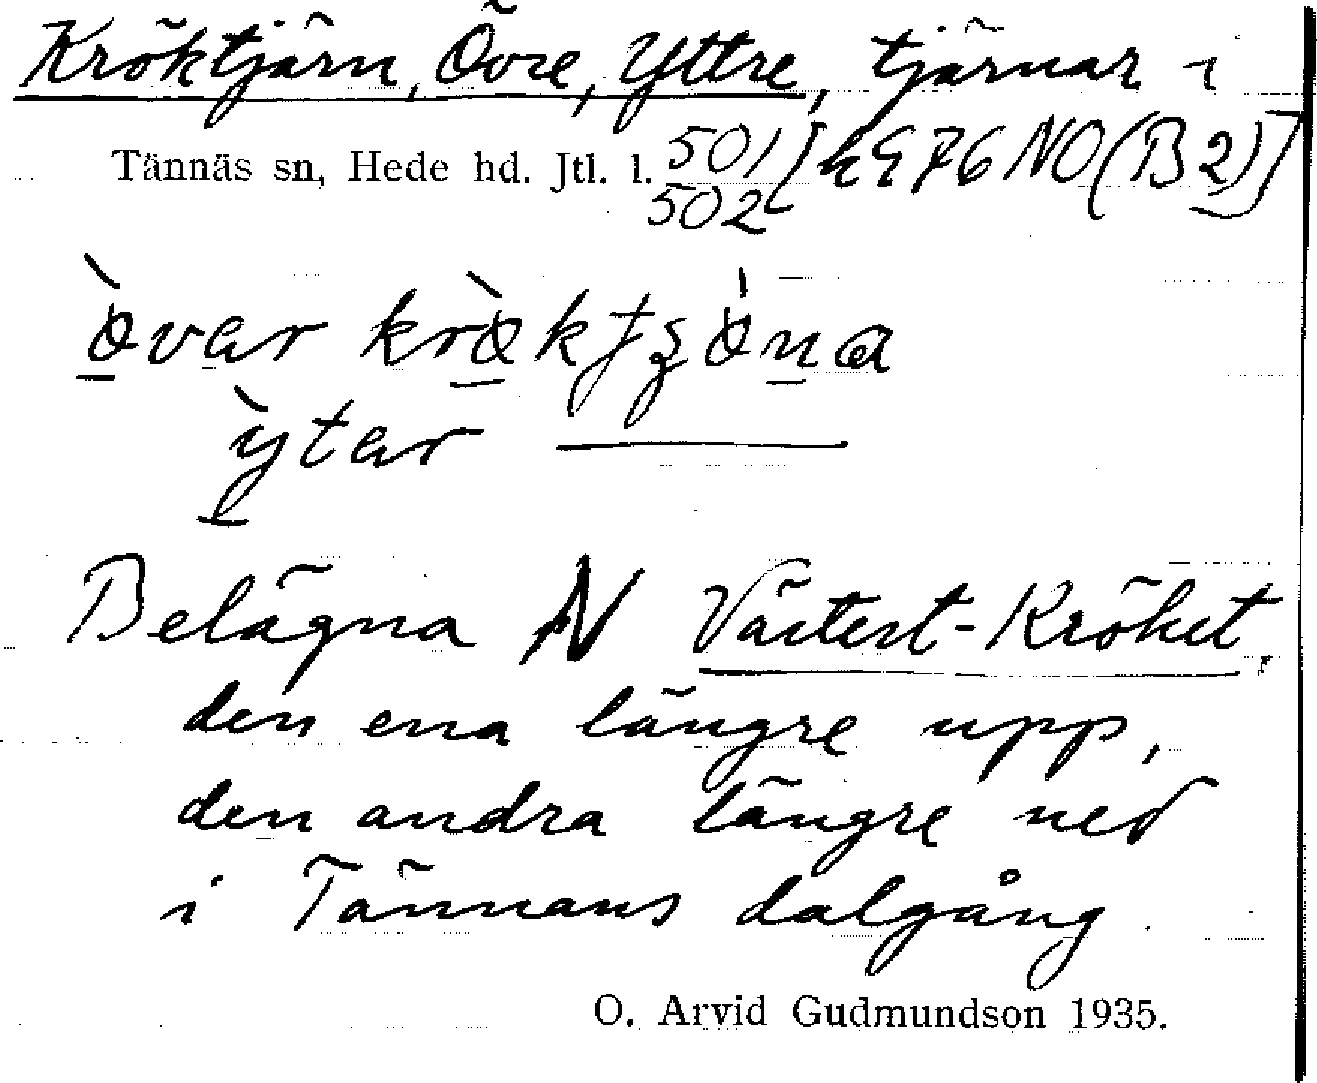 Kröktjärn, Övre, Yttre, tjärnar i
Tännäs sn, Hede hd. Jtl. l. 501 502 [h976NO(B2)]
òvar kròktʃȯna
ỳtar ———
Belägna N Västerst-Kröket,
den ena längre upp,
den andra längre ned
i Tännans dalgång.
O. Arvid Gudmundson 1935.